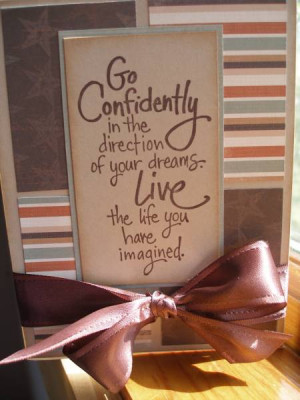 Go
Confidently
in the
direction
of your dreams.
Live
the life you
have
imagined.